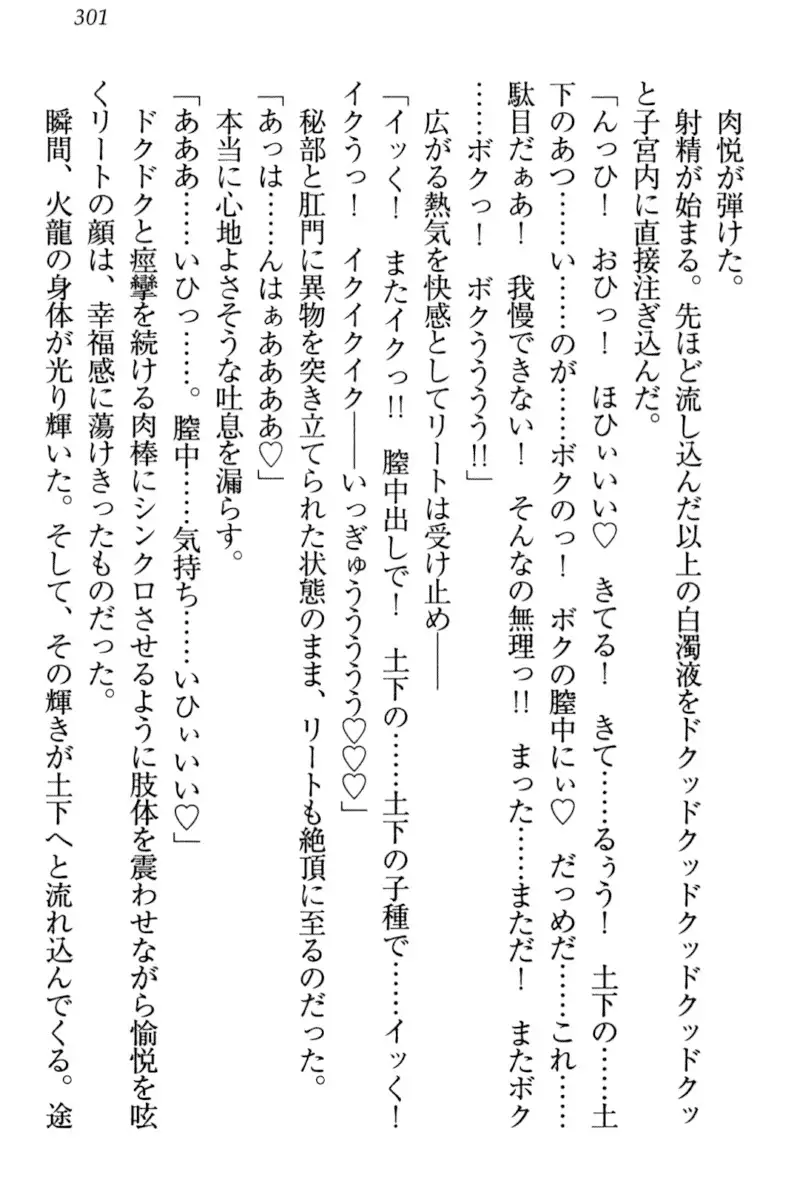 301
肉悦が弾けた。
射精が始まる。先ほど流し込んだ以上の白濁液をドクッドクッドクッドクッドクッ
と子宮内に直接注ぎ込んだ。
「んっひ！　おひっ！　ほひぃいい♡　きてる！　きて……るぅう！　土下の……土
下のあつ……い……のが……ボクのっ！　ボクの膣中にぃ♡　だっめだ……これ……
駄目だぁあ！　我慢できない！　そんなの無理っ!!　まった……まただ！　またボク
……ボクっ！　ボクうううう!!」
広がる熱気を快感としてリートは受け止め――
「イッく！　またイクっ!!　膣中出しで！　土下の……土下の子種で……イッく！
イクうっ！　イクイクイク――いっぎゅううううう♡♡♡」
秘部と肛門に異物を突き立てられた状態のまま、リートも絶頂に至るのだった。
「あっは……んはぁああああ♡」
本当に心地よさそうな吐息を漏らす。
「あああ……いひっ……。膣中……気持ち……いひぃいい♡」
ドクドクと痙攣を続ける肉棒にシンクロさせるように肢体を震わせながら愉悦を呟
くリートの顔は、幸福感に蕩けきったものだった。
瞬間、火龍の身体が光り輝いた。そして、その輝きが土下へと流れ込んでくる。途